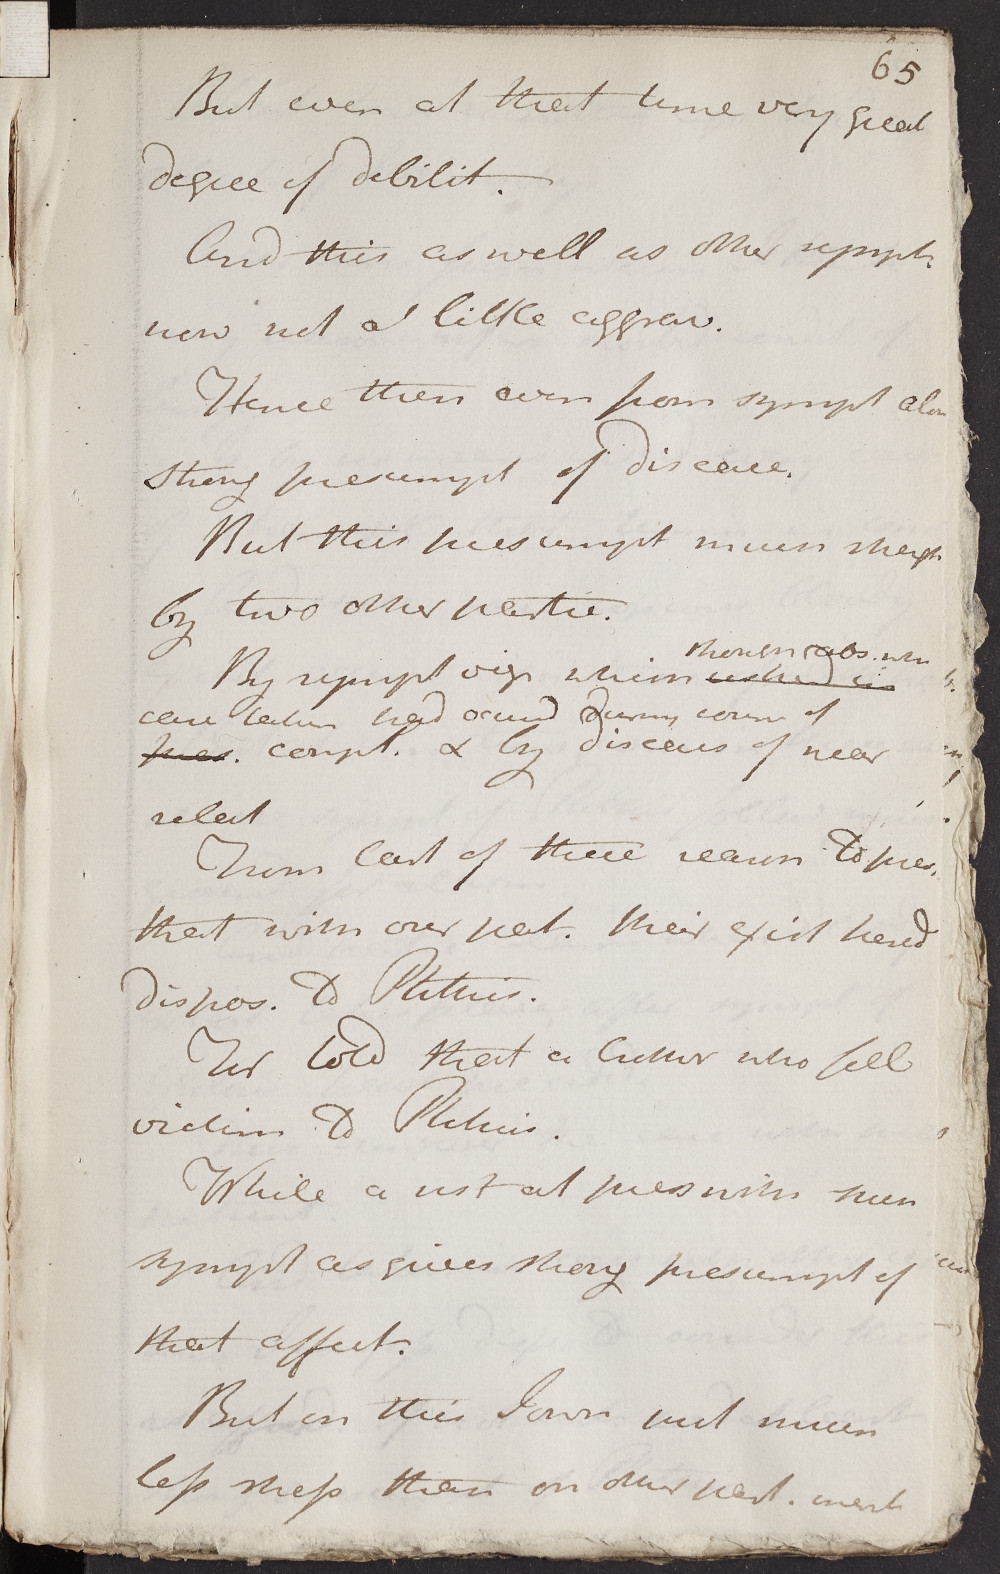 65
But even at that time very great
degree of debilit.
And this as well as other sympt.
now not a little aggrav.
Hence then even from sympt alon
strong presumpt of disease.
But this presumpt much strength
by two other partic.
By sympt viz which
though abs. when
case taken had occurred during course of
pres. compl. & by diseases of near
relat
From last of these reason to pres.
that with our pat. their exist hered
dispos. to Phthisis.
Is told that a brother who fell
victim to Phthisis.
While a sist at pres with such
sympt as gives strong presumpt of
that affect.
But on this I own not much
less stress than on other part. ment